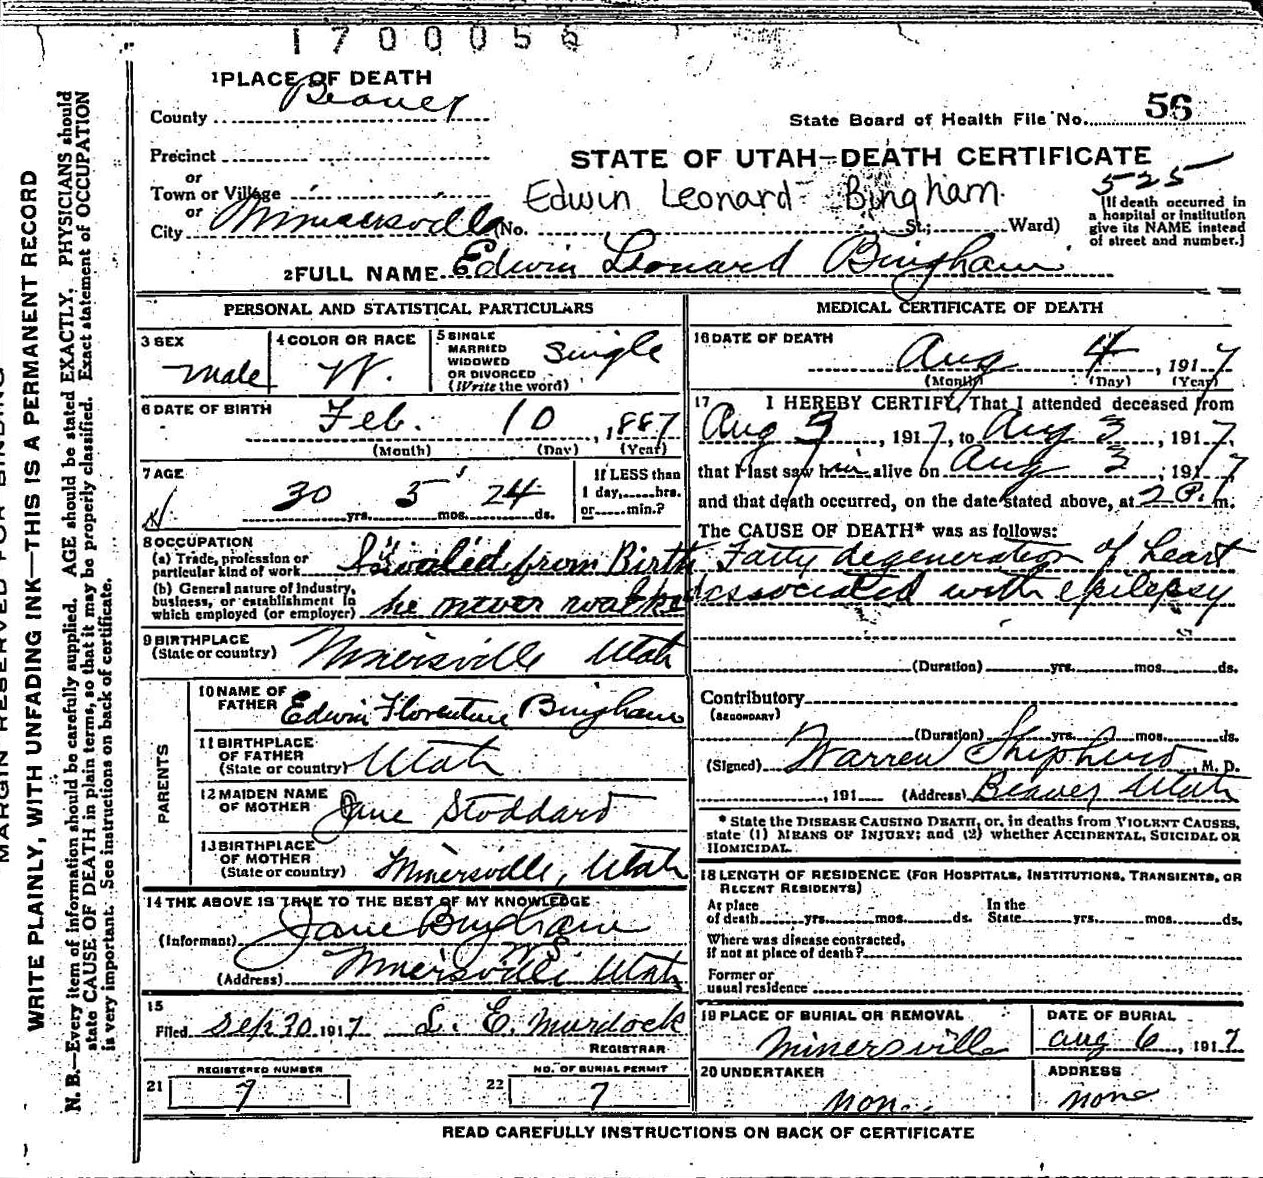 1700056
1 PLACE OF DEATH
County Beaver
State Board of Health File No. 56
Precinct
STATE OF UTAH—DEATH CERTIFICATE
or
Town or Village
Edwin Leonard Bingham.
525
or
City Minersville (No. St.; Ward)
[If death occurred in
a hospital or institution
give its NAME instead
of street and number.]
2 FULL NAME Edwin Leonard Bingham
PERSONAL AND STATISTICAL PARTICULARS
3 SEX
male
4 COLOR OR RACE
W.
5 SINGLE
MARRIED
WIDOWED
OR DIVORCED
(Write the word)
Single
6 DATE OF BIRTH
Feb. 10, 1887
(Month) (Day) (Year)
7 AGE
30 yrs. 5 mos. 24 ds.
If LESS than
1 day, hrs.
or min.?
8 OCCUPATION
(a) Trade, profession or
particular kind of work Invalid from Birth
(b) General nature of industry,
business, or establishment in
which employed (or employer) he never walked
9 BIRTHPLACE
(State or country) Minersville Utah
PARENTS
10 NAME OF
FATHER Edwin Florentine Bingham
11 BIRTHPLACE
OF FATHER
(State or country) Utah
12 MAIDEN NAME
OF MOTHER Jane Stoddard
13 BIRTHPLACE
OF MOTHER
(State or country) Minersville, Utah
14 THE ABOVE IS TRUE TO THE BEST OF MY KNOWLEDGE
(Informant) Jane Bingham
(Address) Minersville Utah
15
Filed Sep 30 1917 L. E. Murdock
REGISTRAR
REGISTERED NUMBER
21 7
NO. OF BURIAL PERMIT
22 7
MEDICAL CERTIFICATE OF DEATH
16 DATE OF DEATH
Aug 4, 1917
(Month) (Day) (Year)
17 I HEREBY CERTIFY, That I attended deceased from
Aug 3, 1917, to Aug 3, 1917,
that I last saw him alive on Aug 3, 1917
and that death occurred, on the date stated above, at 2 P. m.
The CAUSE OF DEATH* was as follows:
Fatty degeneration of heart
associated with epilepsy
(Duration) yrs. mos. ds.
Contributory
(SECONDARY)
(Duration) yrs. mos. ds.
(Signed) Warren Shepherd, M. D.
, 191 (Address) Beaver Utah
* State the DISEASE CAUSING DEATH, or, in deaths from VIOLENT CAUSES,
state (1) MEANS OF INJURY; and (2) whether ACCIDENTAL, SUICIDAL OR
HOMICIDAL.
18 LENGTH OF RESIDENCE (FOR HOSPITALS, INSTITUTIONS, TRANSIENTS, OR
RECENT RESIDENTS)
At place
of death yrs. mos. ds.
In the
State yrs. mos. ds.
Where was disease contracted,
if not at place of death?
Former or
usual residence
19 PLACE OF BURIAL OR REMOVAL
Minersville
DATE OF BURIAL
Aug 6, 1917
20 UNDERTAKER
non
ADDRESS
none
READ CAREFULLY INSTRUCTIONS ON BACK OF CERTIFICATE
MARGIN RESERVED FOR BINDING
WRITE PLAINLY, WITH UNFADING INK—THIS IS A PERMANENT RECORD
N. B.—Every item of information should be carefully supplied. AGE should be stated EXACTLY. PHYSICIANS should
state CAUSE OF DEATH in plain terms, so that it may be properly classified. Exact statement of OCCUPATION
is very important. See instructions on back of certificate.